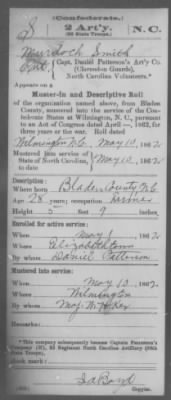 (Confederate.)
S 2 Art'y. N.C.
(36 State Troops.)
Murdoch Smith
Pvt., Capt. Daniel Patterson's Art'y Co.
(Clarendon Guards),
North Carolina Volunteers.*
Appears on a
Muster-In and Descriptive Roll
of the organization named above, from Bladen
County, mustered into the service of the Con-
federate States at Wilmington, N. C., pursuant
to an Act of Congress dated April —, 1862, for
three years or the war. Roll dated
Wilmington N.C., May 10, 1862
Mustered into service of
State of North Carolina, May 10, 1862
Description:
Where born Bladen County N.C.
Age 28 years; occupation Farmer
Height 5 feet 9 inches.
Enrolled for active service:
When May 1, 1862
Where Elizabethtown
By whom Daniel Patterson
Mustered into service:
When May 10, 1862
Where Wilmington
By whom Maj.
Remarks:
*This company subsequently became Captain Patterson's
Company 2d Regiment North Carolina Artillery (36th
State Troops).
Book mark:
Boyd
Copyist.